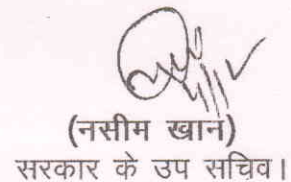 (नसीम खान)
सरकार के उप सचिव।